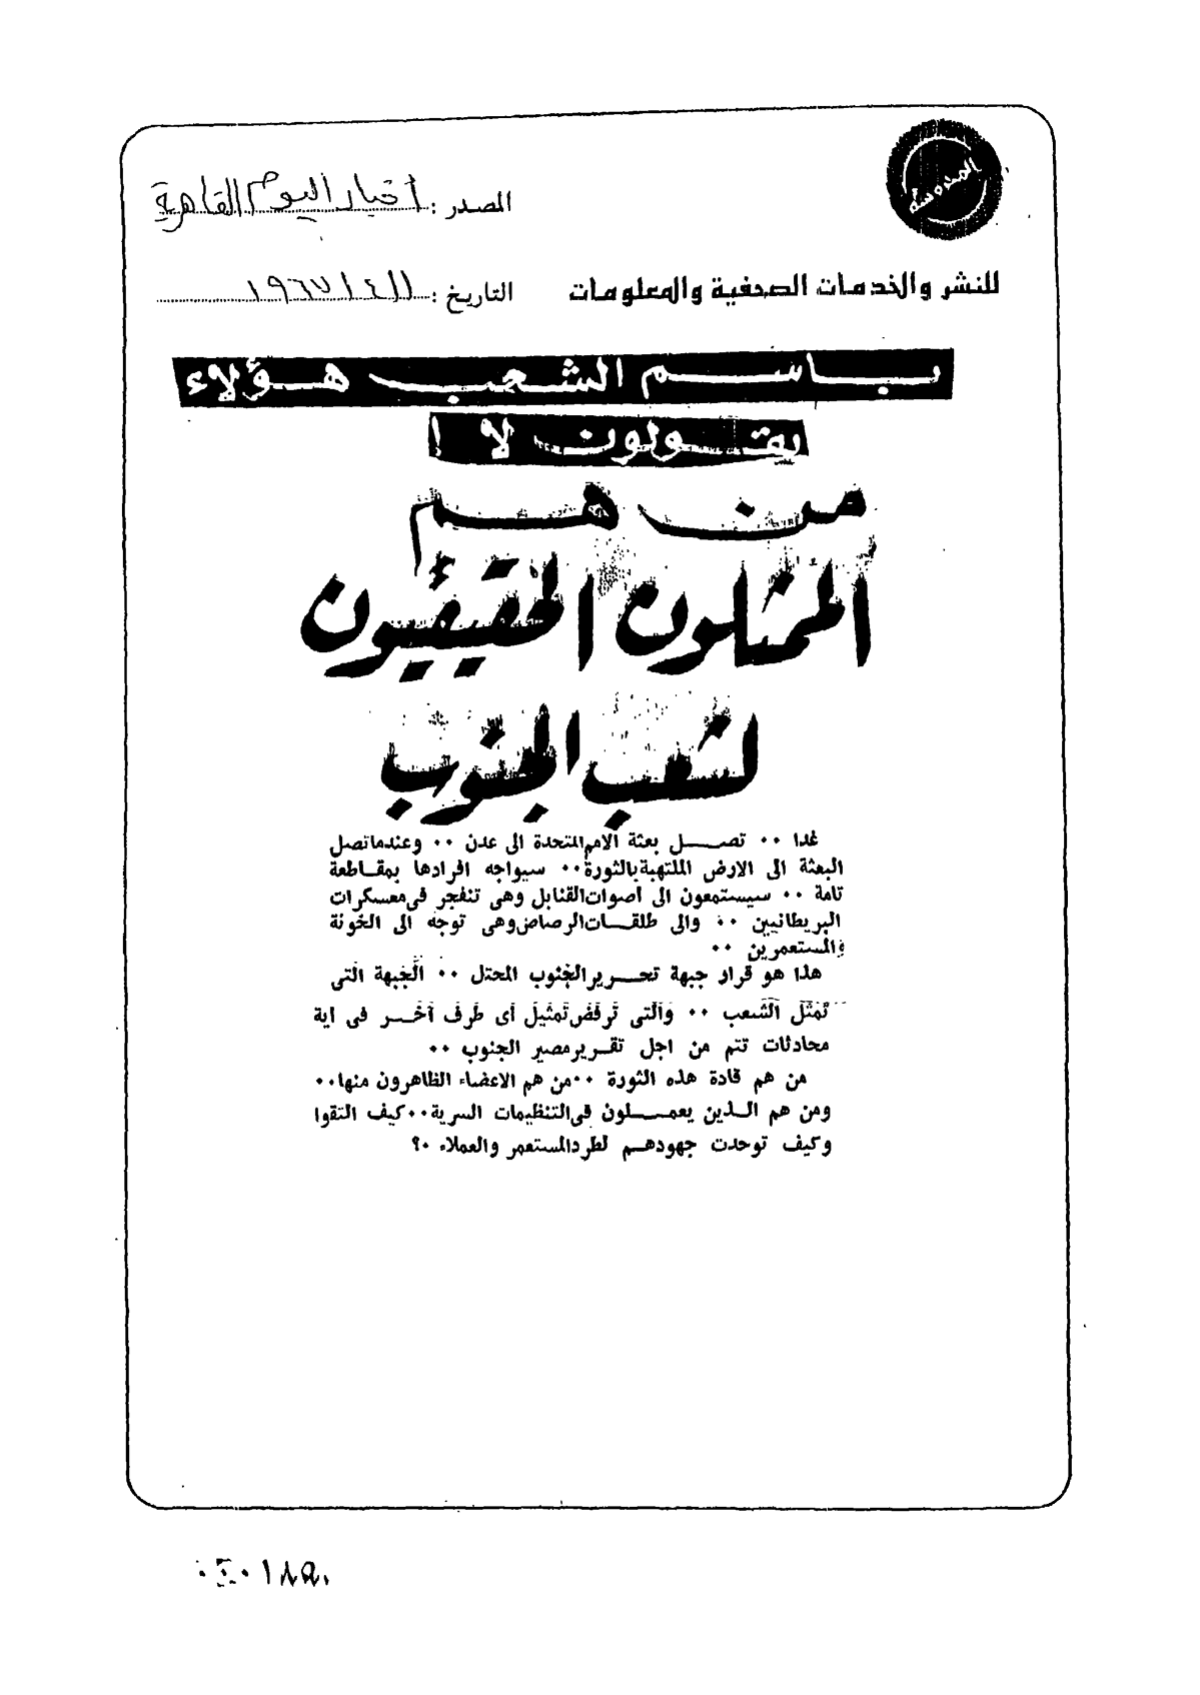 المحروسة
المصدر : أخبار اليوم القاهرية
للنشر والخدمات الصحفية والمعلومات
التاريخ : ١ / ٤ / ١٩٦٧
باسم الشعب هؤلاء
يقولون لا !
من هم
الممثلون الحقيقيون
لشعب الجنوب
غدا ٠٠ تصل بعثة الامم المتحدة الى عدن ٠٠ وعندما تصل
البعثة الى الارض الملتهبة بالثورة ٠٠ سيواجه افرادها بمقاطعة
تامة ٠٠ سيستمعون الى أصوات القنابل وهى تنفجر فى معسكرات
البريطانيين ٠٠ والى طلقات الرصاص وهى توجه الى الخونة
والمستعمرين ٠٠
هذا هو قرار جبهة تحرير الجنوب المحتل ٠٠ الجبهة التى
تمثل الشعب ٠٠ والتى ترفض تمثيل أى طرف آخر فى اية
محادثات تتم من اجل تقرير مصير الجنوب ٠٠
من هم قادة هذه الثورة ٠٠ من هم الاعضاء الظاهرون منها ٠٠
ومن هم الذين يعملون فى التنظيمات السرية ٠٠ كيف التقوا
وكيف توحدت جهودهم لطرد المستعمر والعملاء ٠؟